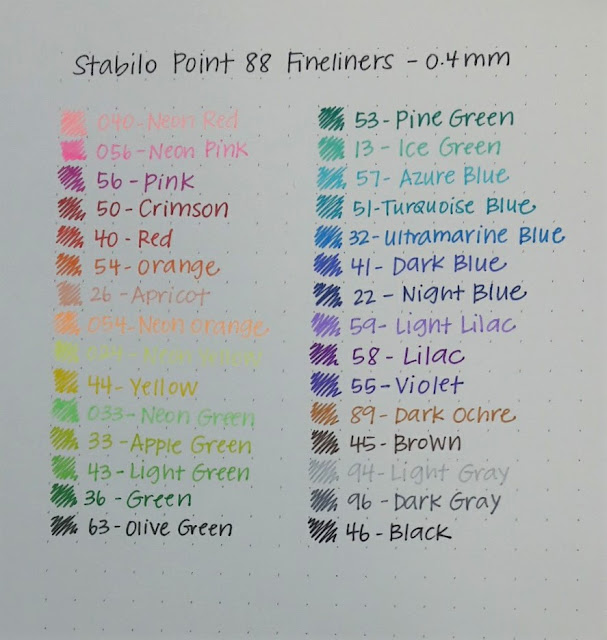 Stabilo Point 88 Fineliners - 0.4mm
040-Neon Red
056-Neon Pink
56-Pink
50-Crimson
40-Red
54-orange
26-Apricot
054-Neon orange
024-Neon Yellow
44-Yellow
033-Neon Green
33-Apple Green
43-Light Green
36-Green
63-Olive Green
53-Pine Green
13-Ice Green
57-Azure Blue
51-Turquoise Blue
32-ultramarine Blue
41-Dark Blue
22-Night Blue
59-Light Lilac
58-Lilac
55-Violet
89-Dark Ochre
45-Brown
94-Light Gray
96-Dark Gray
46-Black